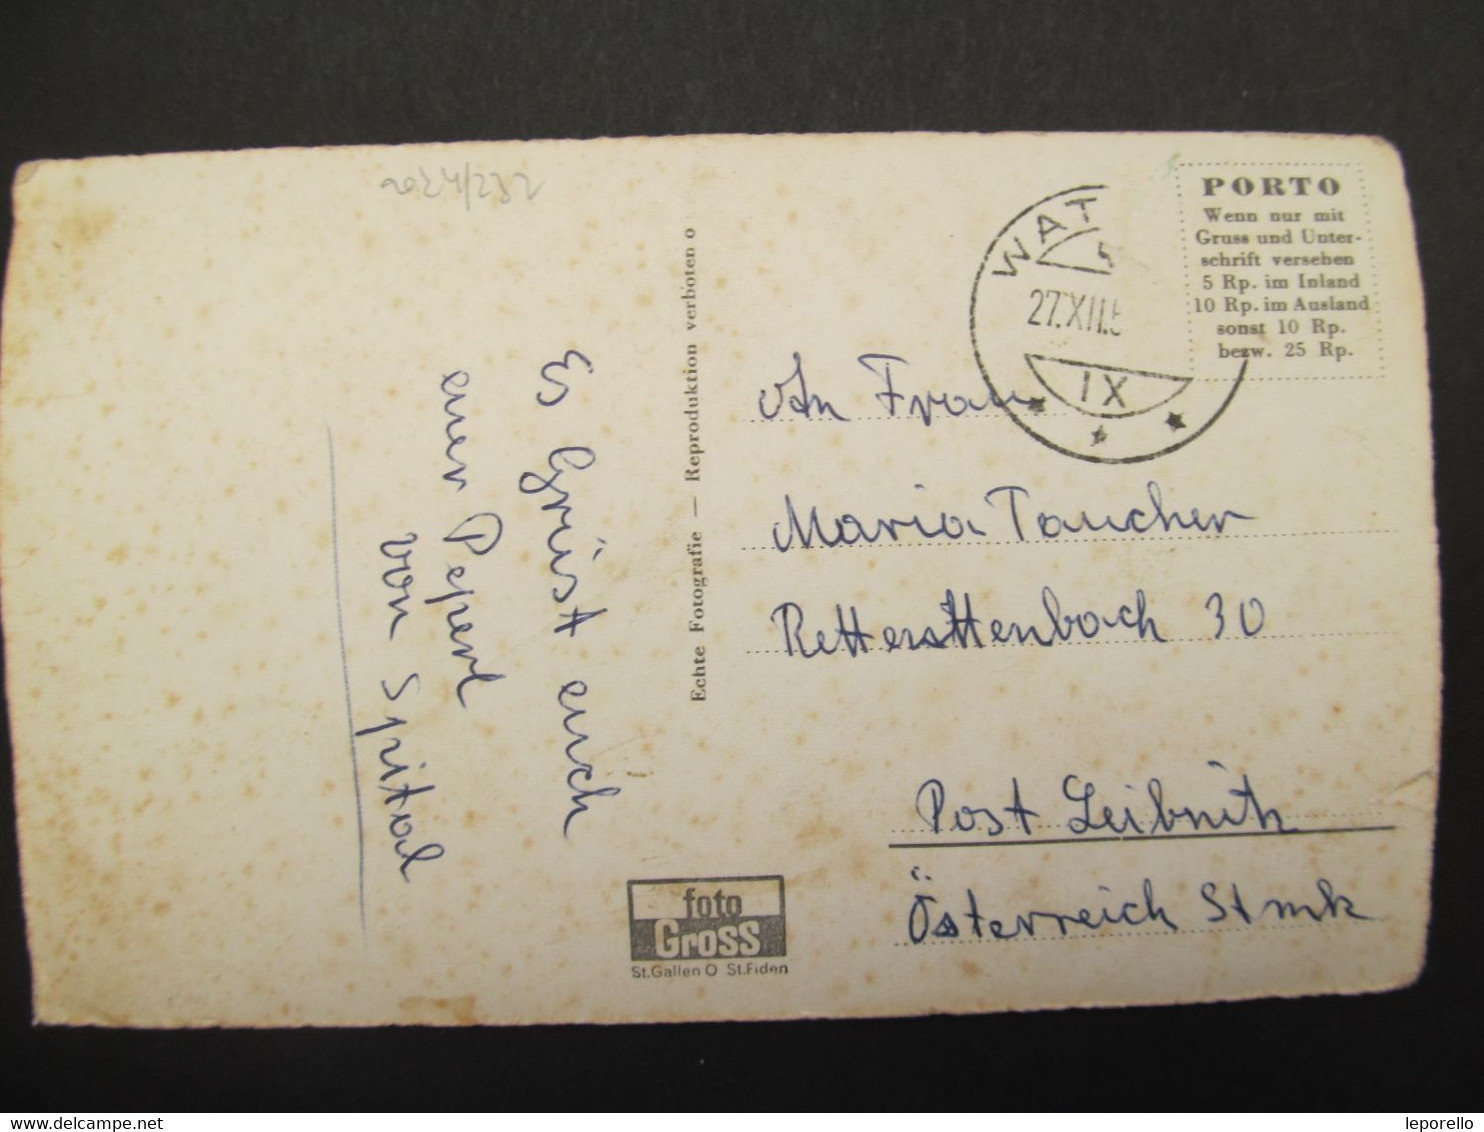 2024/232
Es Grüst euch
euer Peperl
von Spital
Echte Fotografie — Reproduktion verboten o
foto
Gross
St.Gallen O St.Fiden
WAT
27.XII.5
IX
PORTO
Wenn nur mit
Gruss und Unter-
schrift versehen
5 Rp. im Inland
10 Rp. im Ausland
sonst 10 Rp.
bezw. 25 Rp.
An Frau
Maria Taucher
30
Post Leibnitz
Österreich Stmk
leporello